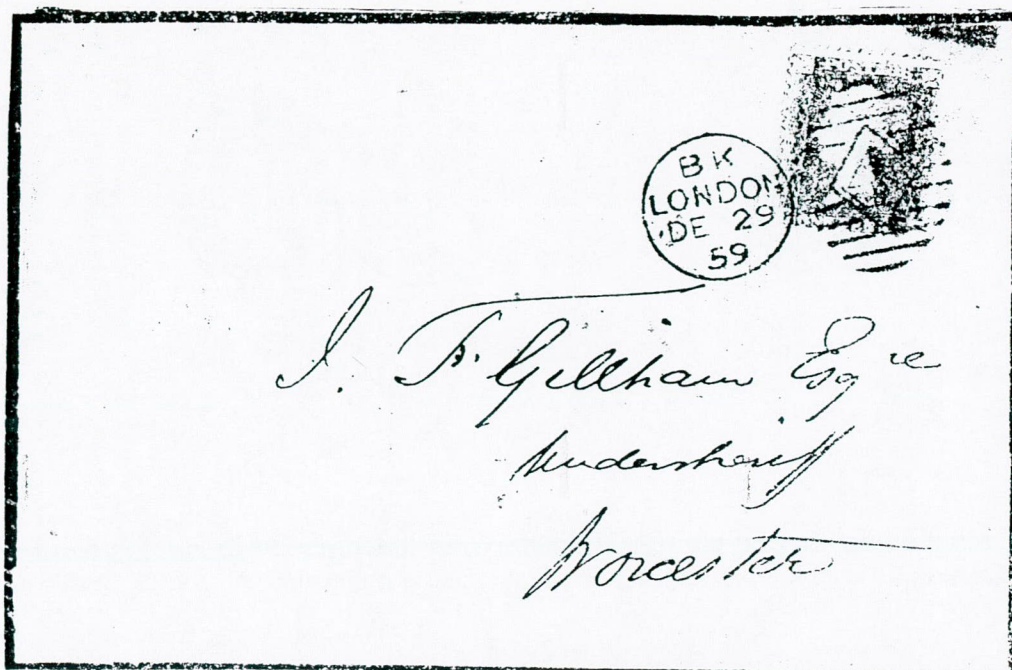 BK
LONDON
DE 29
59
J. F. Gillham Esqre
Undersheriff
Worcester